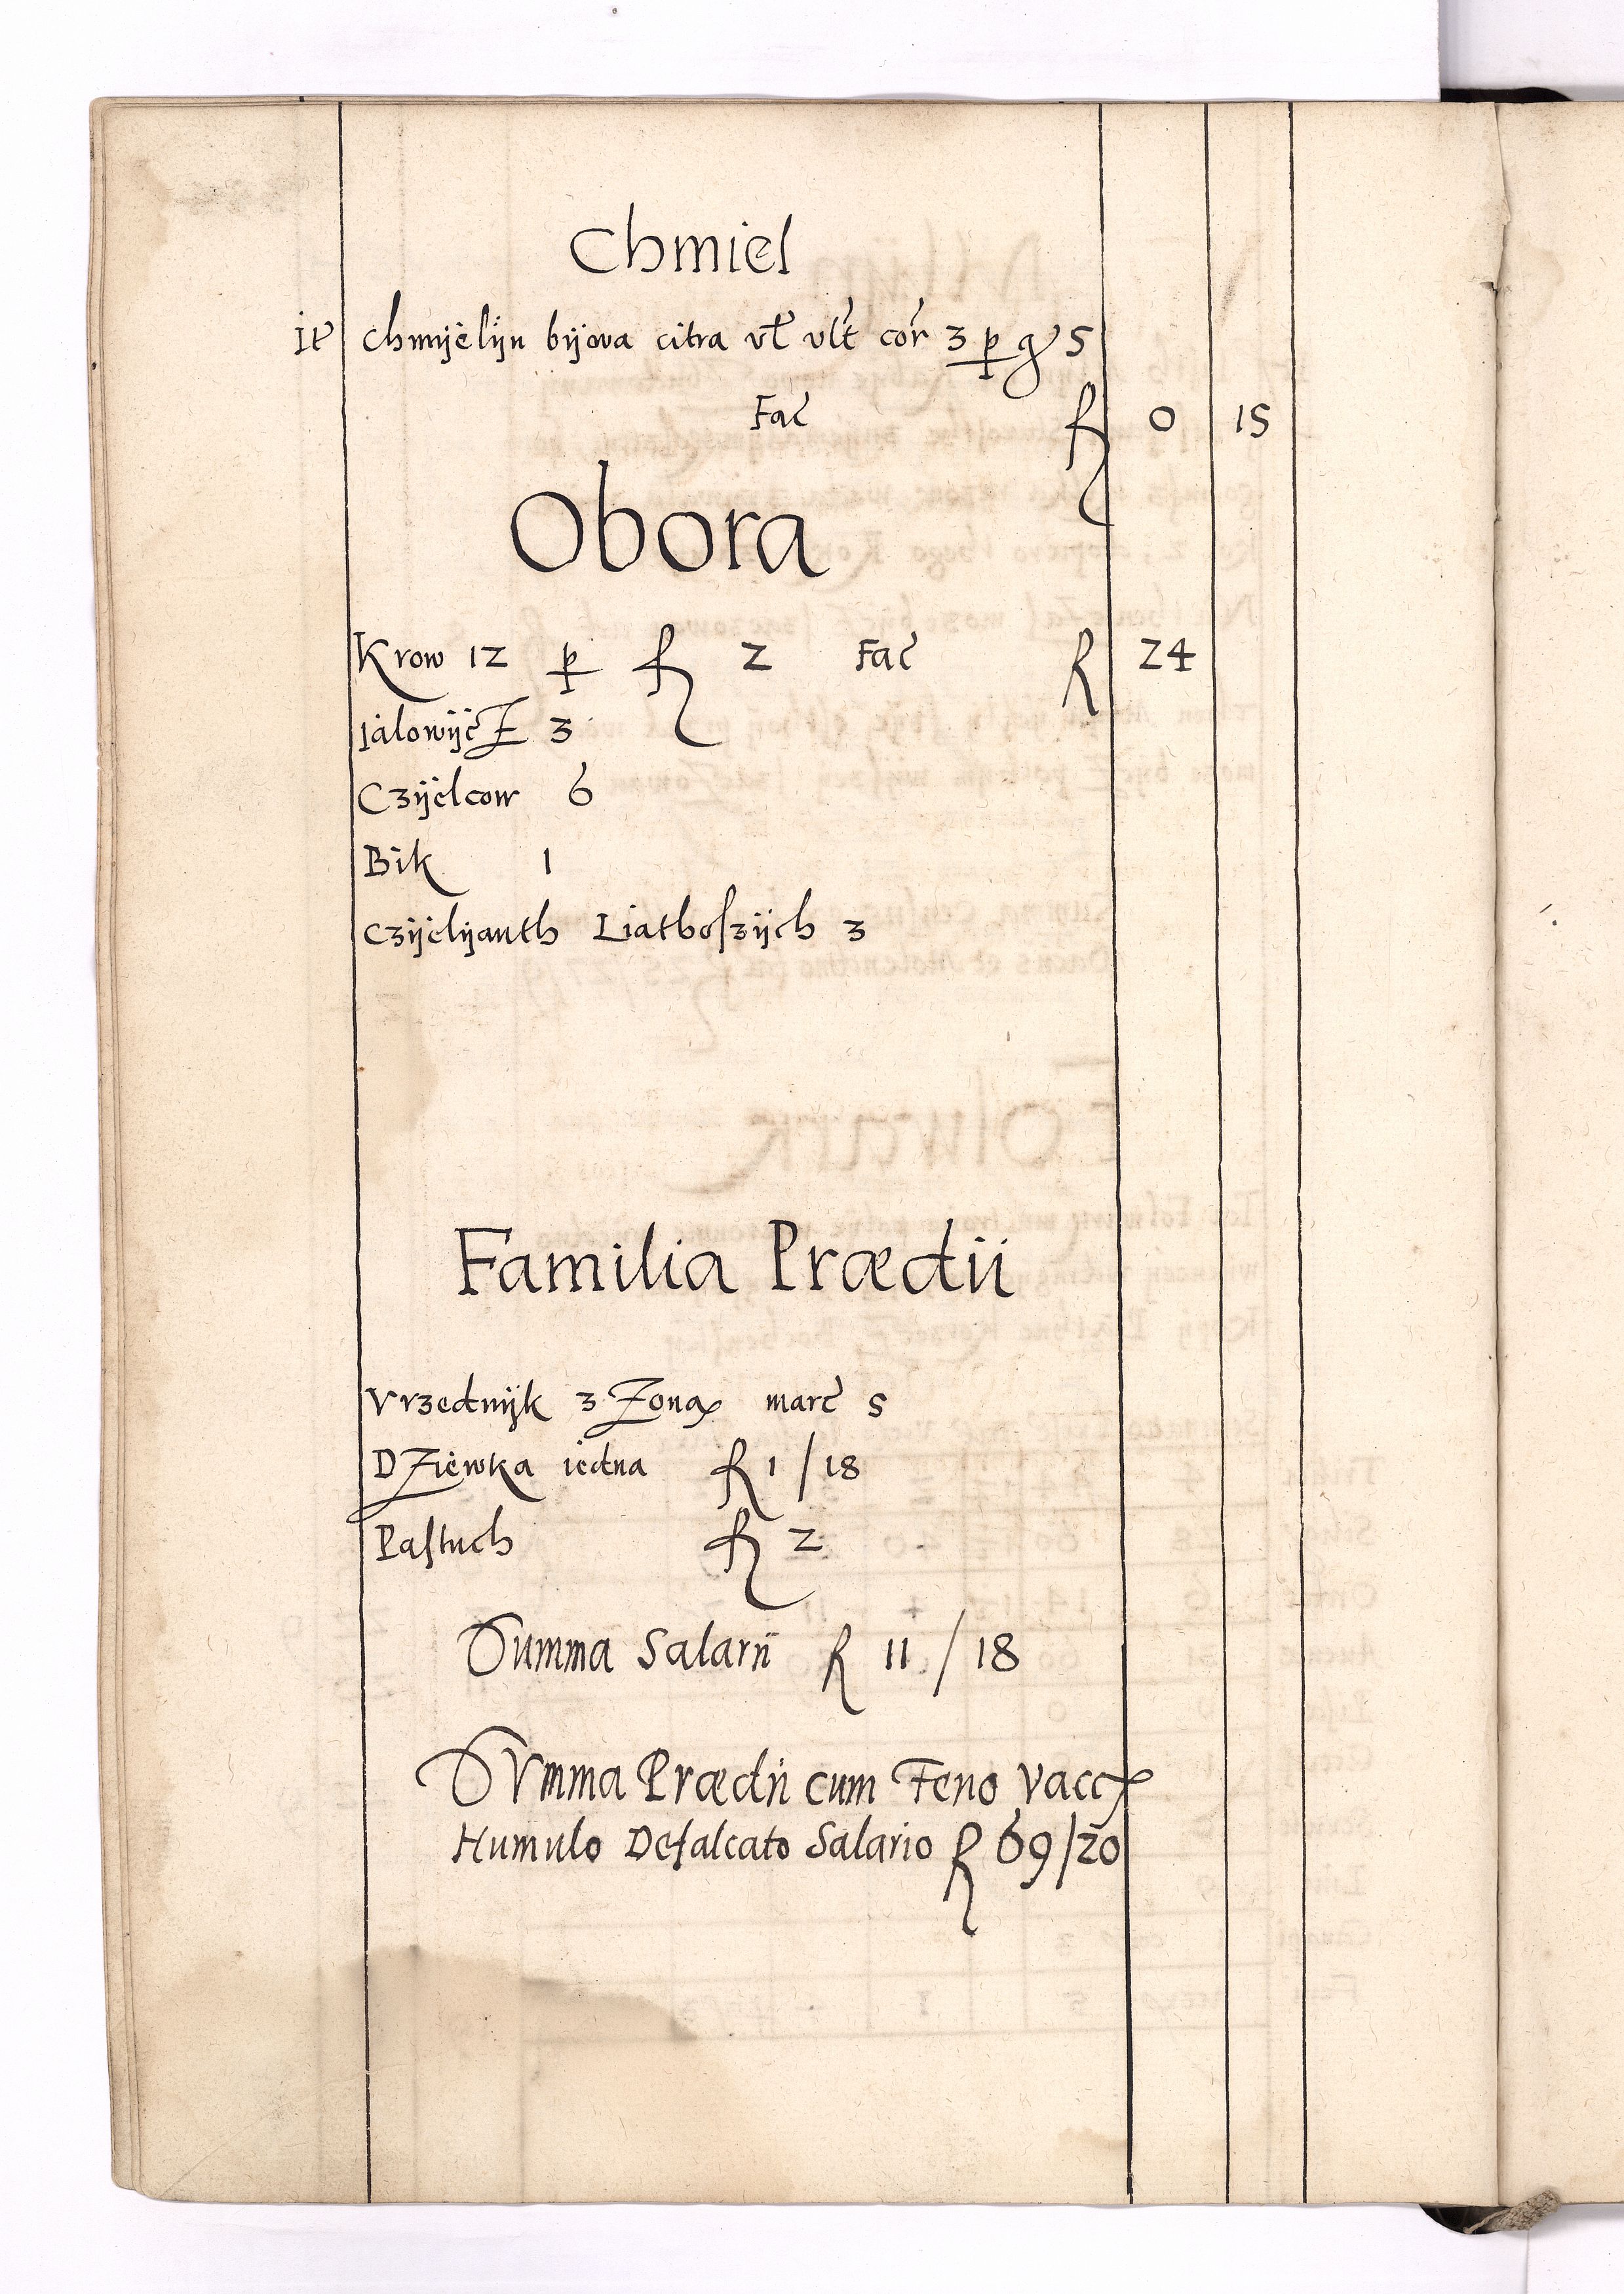 Chmiel
It Chmÿelÿn bÿwa citra vl ult cor 3 p g 5
Fac fl 0 15
Obora
Krow 12 p fl 2 Fac fl 24
Ialowÿcz 3
Czÿelcow 6
Bik 1
Czÿelÿanth Liathoſzÿch 3
Familia Prædii
Vrzednÿk z Zona marc 5
DZiewka iedna fl 1/18
Paſtuch fl 2
Summa Salarii fl 11/18
SVmma Prædii cum Feno Vacc
Humulo Defalcato Salario fl 69/20